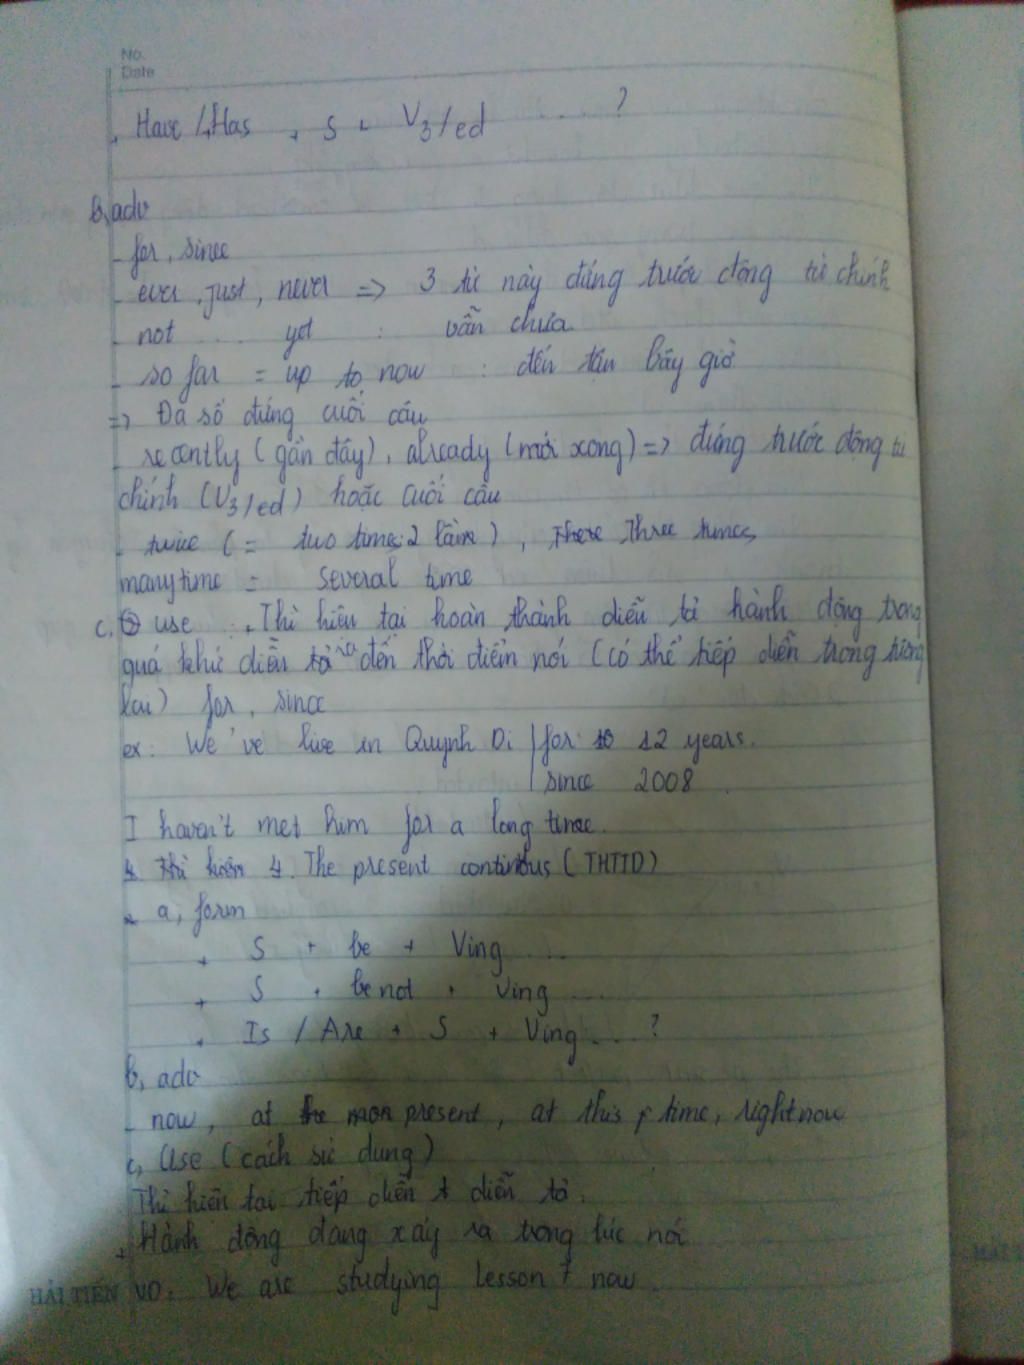 No.
Date
. Have / Has + S + V3/ed .... ?
b, adv
- for, since
- ever, just, never => 3 từ này đứng trước động từ chính
- not ... yet : vẫn chưa
- so far = up to now : đến tận bây giờ
=> Đa số đứng cuối câu
- recently (gần đây), already (mới xong) => đứng trước động từ
chính (V3/ed) hoặc cuối câu
- twice (= two times: 2 lần), There Three times,
many time = several time
c. use : . Thì hiện tại hoàn thành diễn tả hành động trong
quá khứ diễn tả ra đến thời điểm nói (có thể tiếp diễn trong tương
lai) for, since
ex: We've live in Quynh Di | for 10 12 years.
| since 2008.
I haven't met him for a long time.
4. Thì hiện 4. The present continous (THTTD)
a, form
+ S + be + Ving ....
+ S + be not + Ving ....
+ Is / Are + S + Ving .... ?
b, adv
- now, at the mon present, at this time, right now
c, Use (cách sử dụng)
Thì hiện tại tiếp diễn t diễn tả.
+ Hành động đang xảy ra trong lúc nói
HẢI TIẾN VD: We are studying lesson 7 now